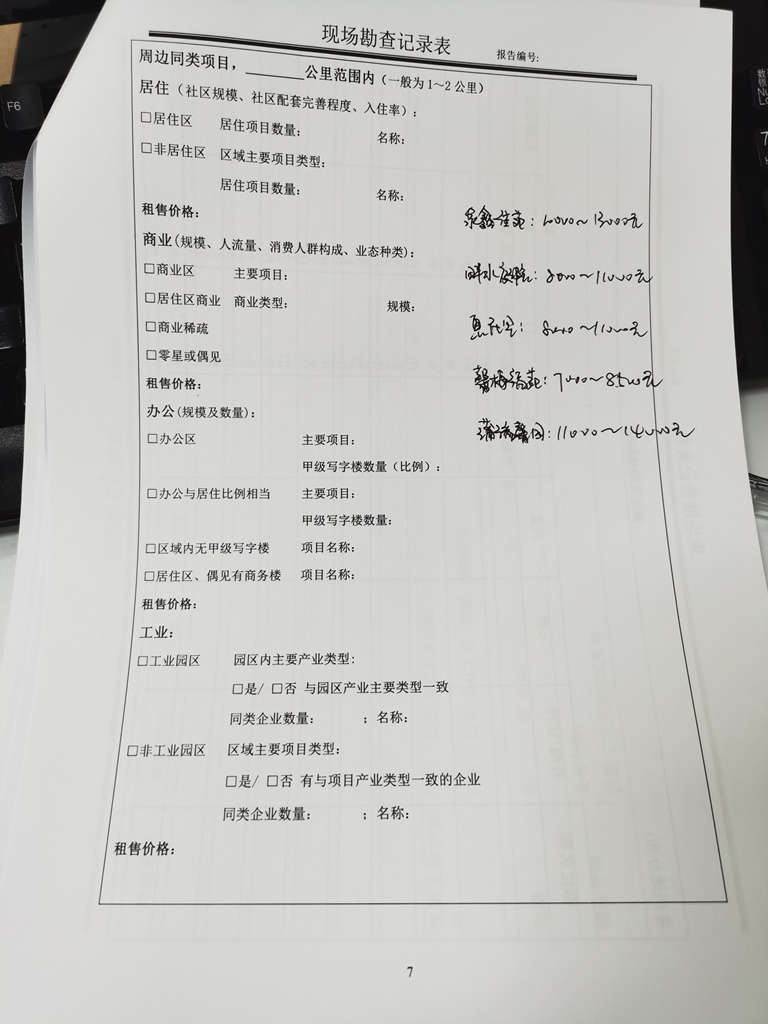 现场勘查记录表
报告编号:
周边同类项目，______公里范围内（一般为1～2公里）
居住（社区规模、社区配套完善程度、入住率）:
□居住区 居住项目数量: 名称:
□非居住区 区域主要项目类型:
居住项目数量: 名称:
租售价格:
佳苑: 10000～13000元
商业(规模、人流量、消费人群构成、业态种类):
□商业区 主要项目:
8000～11000元
□居住区商业 商业类型: 规模:
□商业稀疏
8000～11000元
□零星或偶见
租售价格:
7000～8500元
办公(规模及数量):
□办公区 主要项目:
11000～14000元
甲级写字楼数量（比例）:
□办公与居住比例相当 主要项目:
甲级写字楼数量:
□区域内无甲级写字楼 项目名称:
□居住区、偶见有商务楼 项目名称:
租售价格:
工业:
□工业园区 园区内主要产业类型:
□是/ □否 与园区产业主要类型一致
同类企业数量: ；名称:
□非工业园区 区域主要项目类型:
□是/ □否 有与项目产业类型一致的企业
同类企业数量: ；名称:
租售价格:
7
F6